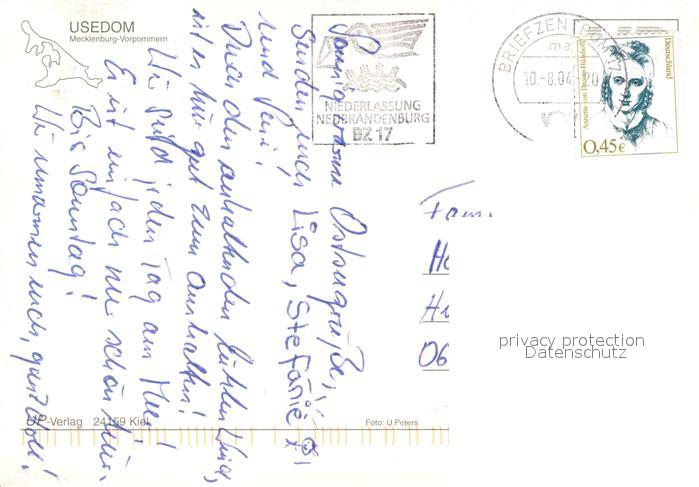 USEDOM
Mecklenburg-Vorpommern
NIEDERLASSUNG
NEUBRANDENBURG
BZ 17
BRIEFZENTRUM 17
10.-8.04
Deutschland
Annette von Droste-Hülshoff
0,45€
Sonnig warme Ostseegrüße,
senden euch Lisa, Stefanie
und Peri!
Durch den anhaltenden kühlen Wind,
ist es hier gut zum aushalten!
Wir sind jeden Tag am Meer!
Es ist einfach nur schön hier.
Bis Sonntag!
Wir umarmen euch, ganz doll!
Fam.
06
privacy protection
Datenschutz
UP-Verlag 24159 Kiel
Foto: U.Peters